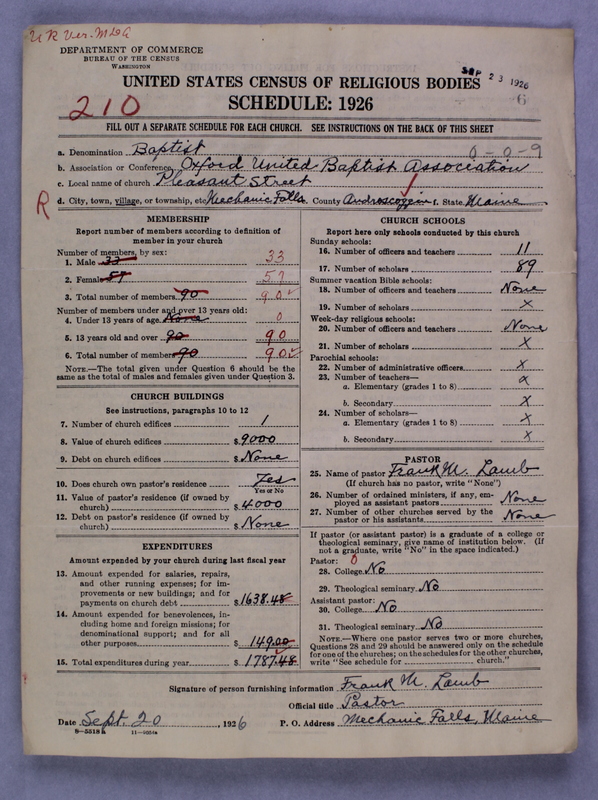 U R Ver. MDA
DEPARTMENT OF COMMERCE
BUREAU OF THE CENSUS
WASHINGTON
SEP 23 1926
UNITED STATES CENSUS OF RELIGIOUS BODIES
210
SCHEDULE: 1926
6
FILL OUT A SEPARATE SCHEDULE FOR EACH CHURCH. SEE INSTRUCTIONS ON THE BACK OF THIS SHEET
a. Denomination Baptist 0-0-9
b. Association or Conference Oxford United Baptist Association
c. Local name of church Pleasant Street
R d. City, town, village, or township, etc Mechanic Falls. County Androscoggin f. State Maine
MEMBERSHIP
Report number of members according to definition of
member in your church
Number of members, by sex:
1. Male 33 33
2. Female 57 57
3. Total number of members 90 90
Number of members under and over 13 years old:
4. Under 13 years of age None 0
5. 13 years old and over 90 90
6. Total number of members 90 90
NOTE.—The total given under Question 6 should be the
same as the total of males and females given under Question 3.
CHURCH BUILDINGS
See instructions, paragraphs 10 to 12
7. Number of church edifices 1
8. Value of church edifices $ 9000
9. Debt on church edifices $ None
10. Does church own pastor's residence Yes
Yes or No
11. Value of pastor's residence (if owned by
church) $ 4000
12. Debt on pastor's residence (if owned by
church) $ None
EXPENDITURES
Amount expended by your church during last fiscal year
13. Amount expended for salaries, repairs,
and other running expenses; for im-
provements or new buildings; and for
payments on church debt $ 1638.48
14. Amount expended for benevolences, in-
cluding home and foreign missions; for
denominational support; and for all
other purposes $ 149.00
15. Total expenditures during year $ 1787.48
CHURCH SCHOOLS
Report here only schools conducted by this church
Sunday schools:
16. Number of officers and teachers 11
17. Number of scholars 89
Summer vacation Bible schools:
18. Number of officers and teachers None
19. Number of scholars X
Week-day religious schools:
20. Number of officers and teachers None
21. Number of scholars X
Parochial schools:
22. Number of administrative officers X
23. Number of teachers—
a. Elementary (grades 1 to 8) X
b. Secondary X
24. Number of scholars—
a. Elementary (grades 1 to 8) X
b. Secondary X
PASTOR
25. Name of pastor Frank M. Lamb
(If church has no pastor, write "None")
26. Number of ordained ministers, if any, em-
ployed as assistant pastors None
27. Number of other churches served by the
pastor or his assistants None
If pastor (or assistant pastor) is a graduate of a college or
theological seminary, give name of institution below. (If
not a graduate, write "No" in the space indicated.)
Pastor: 0
28. College No
29. Theological seminary No
Assistant pastor:
30. College No
31. Theological seminary No
NOTE.—Where one pastor serves two or more churches,
Questions 28 and 29 should be answered only on the schedule
for one of the churches; on the schedules for the other churches,
write "See schedule for church."
Signature of person furnishing information Frank M. Lamb
Official title Pastor
Date Sept. 20, 1926 P. O. Address Mechanic Falls, Maine